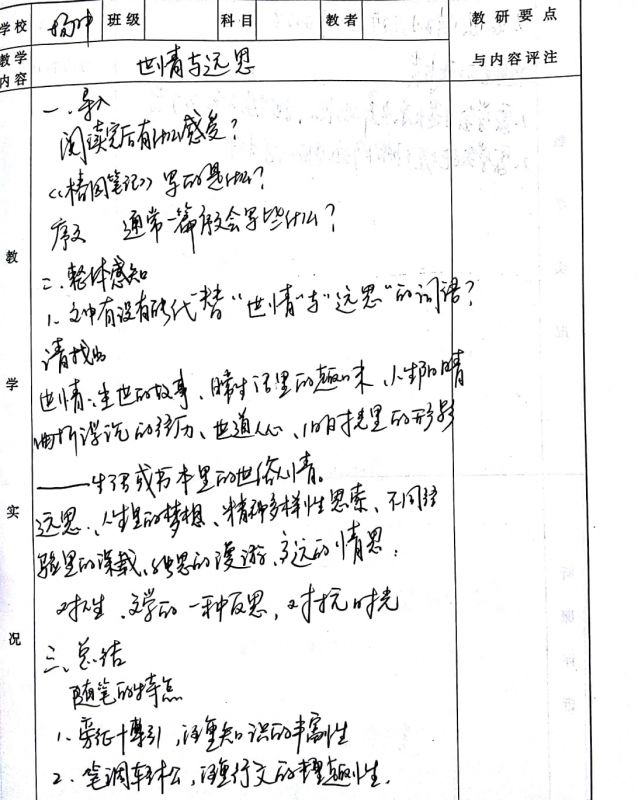 学校 班级 科目 教者 教研要点
教学内容 世情与远思 与内容评注
一、导入
阅读完后有什么感受？
《椿园笔记》写的是什么？
序文 通常一篇序文会写些什么？
二、整体感知
1、文中有没有能代替“世情”与“远思”的词语？
请找出
世情：生世的故事、日常生活里的趣味、人生阴晴
曲折 的经历、世道人心、旧时光里的形影
——生活或书本里的世俗人情。
远思：人生里的梦想、精神多样性思索、不同经
验里的 、 思的漫游、高远的情思：
对人生、文学的一种反思，对抗时光
三、总结
随笔的特点
1、旁征博引，注重知识的丰富性
2、笔调轻松，注重行文的理趣性。
教学实况